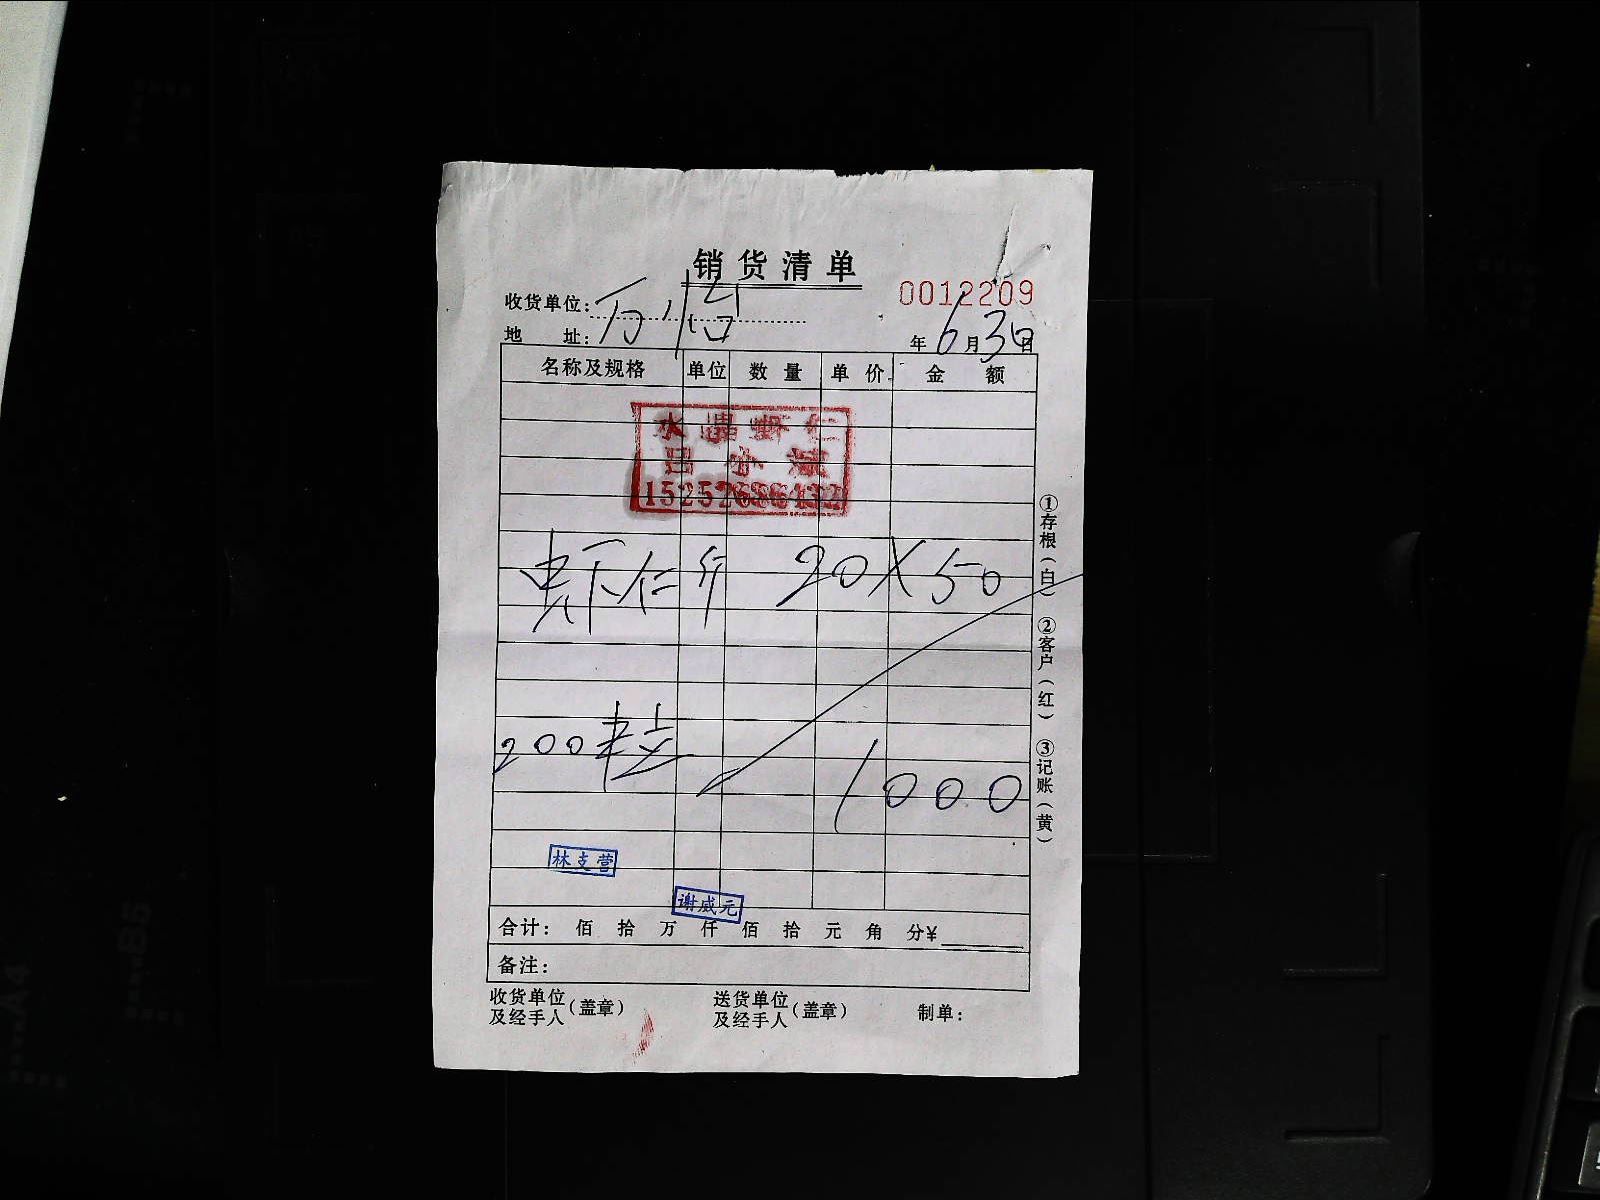 销货清单
0012209
收货单位:万怡
地 址: 年6月30日
名称及规格 单位 数量 单价 金额
水晶虾仁
吕小
虾仁 斤 20X50
200
1000
林支营
谢威元
合计: 佰 拾 万 仟 佰 拾 元 角 分¥
备注:
收货单位及经手人(盖章) 送货单位及经手人(盖章) 制单:
①存根(白) ②客户(红) ③记账(黄)
A4
B5